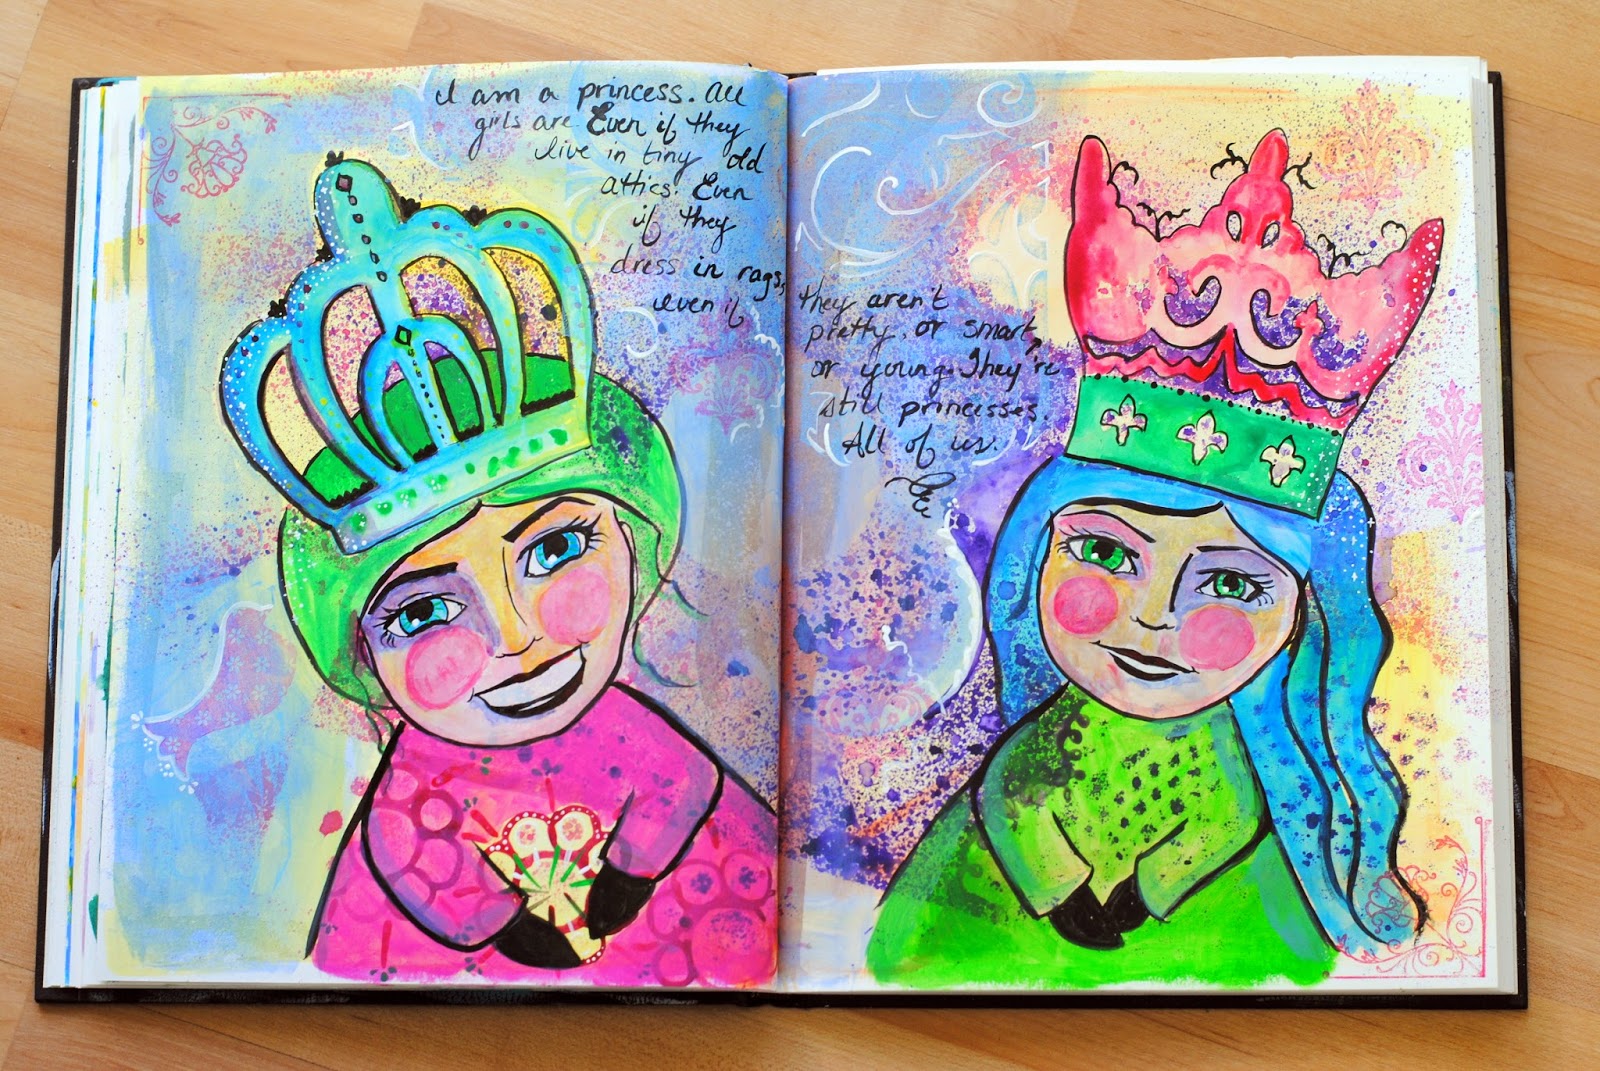 I am a princess. All
girls are Even if they
live in tiny old
attics. Even
if they
dress in rags,
even if
they aren't
pretty, or smart,
or young. They're
still princesses.
All of us.